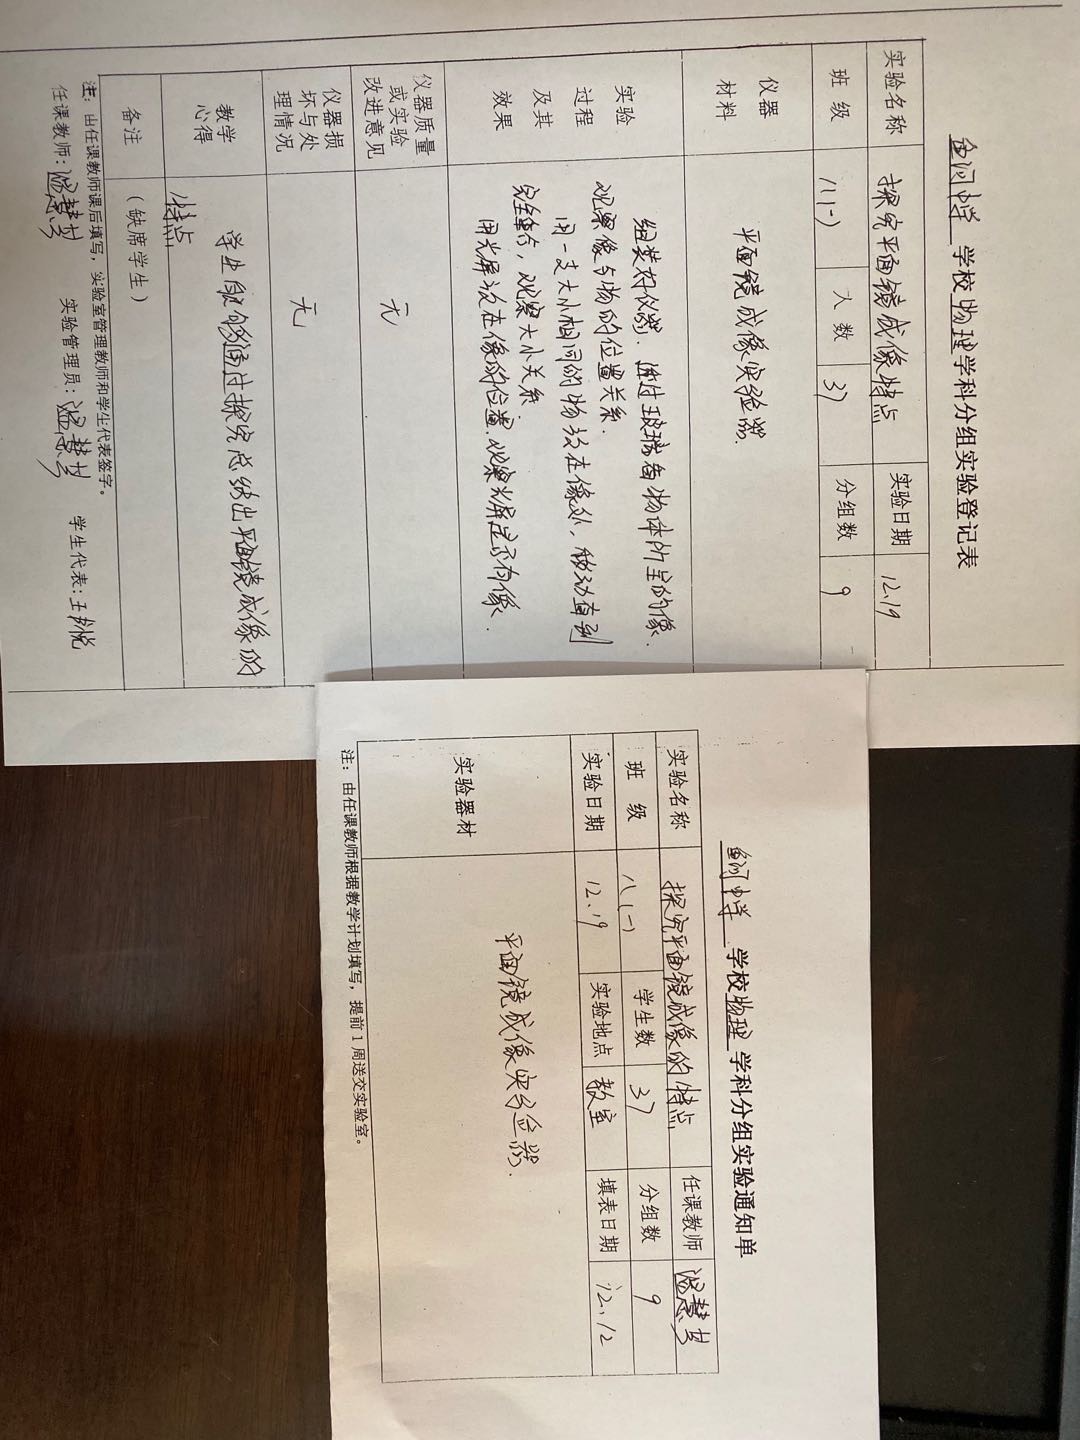 学校物理学科分组实验登记表
实验名称 探究平面镜成像特点 实验日期 12.19
班 级 八(一) 人 数 37 分组数 9
仪器材料 平面镜成像实验器.
实验过程及其效果
组装好仪器.透过玻璃看物体所呈的像.
观察像与物的位置关系.
用一支大小相同的物放在像处,移动直到
完全重合,观察大小关系.
用光屏放在像的位置.观察光屏是否有像.
仪器质量或实验改进意见 无
仪器损坏与处理情况 无
教学心得
学生能够通过探究总结出平面镜成像的
特点
备注 (缺席学生)
注:由任课教师课后填写,实验室管理教师和学生代表签字。
任课教师: 实验管理员: 学生代表:
学校物理 学科分组实验通知单
实验名称 探究平面镜成像的特点 任课教师
班 级 八(一) 学生数 37 分组数 9
实验日期 12.19 实验地点 教室 填表日期 12.12
实验器材 平面镜成像实验器.
注:由任课教师根据教学计划填写,提前1周送交实验室。